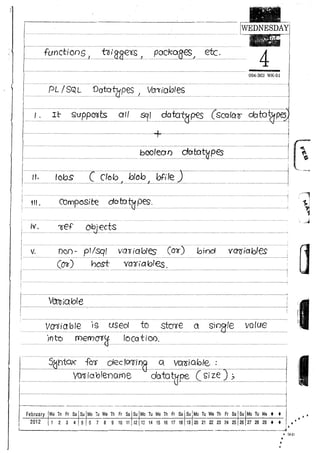 WEDNESDAY
4
functions, triggers, packages, etc.
PL/SQL Datatypes, Variables
I. It supports all sql datatypes (scalar datatypes)
+
boolean datatypes
II. lobs (Clob, blob, bfile)
III. Composite datatypes.
IV. ref objects
V. non-pl/sql variables (or) bind variables
(or) host variables.
Variable
Variable is used to store a single value
into memory location.
Syntax for declaring a variable :
Variablename datatype (size);
FEB
MAR
February We Th Fr Sa Su Mo Tu We Th Fr Sa Su Mo Tu We Th Fr Sa Su Mo Tu We Th Fr Sa Su Mo Tu We
2012 1 2 3 4 5 6 7 8 9 10 11 12 13 14 15 16 17 18 19 20 21 22 23 24 25 26 27 28 29